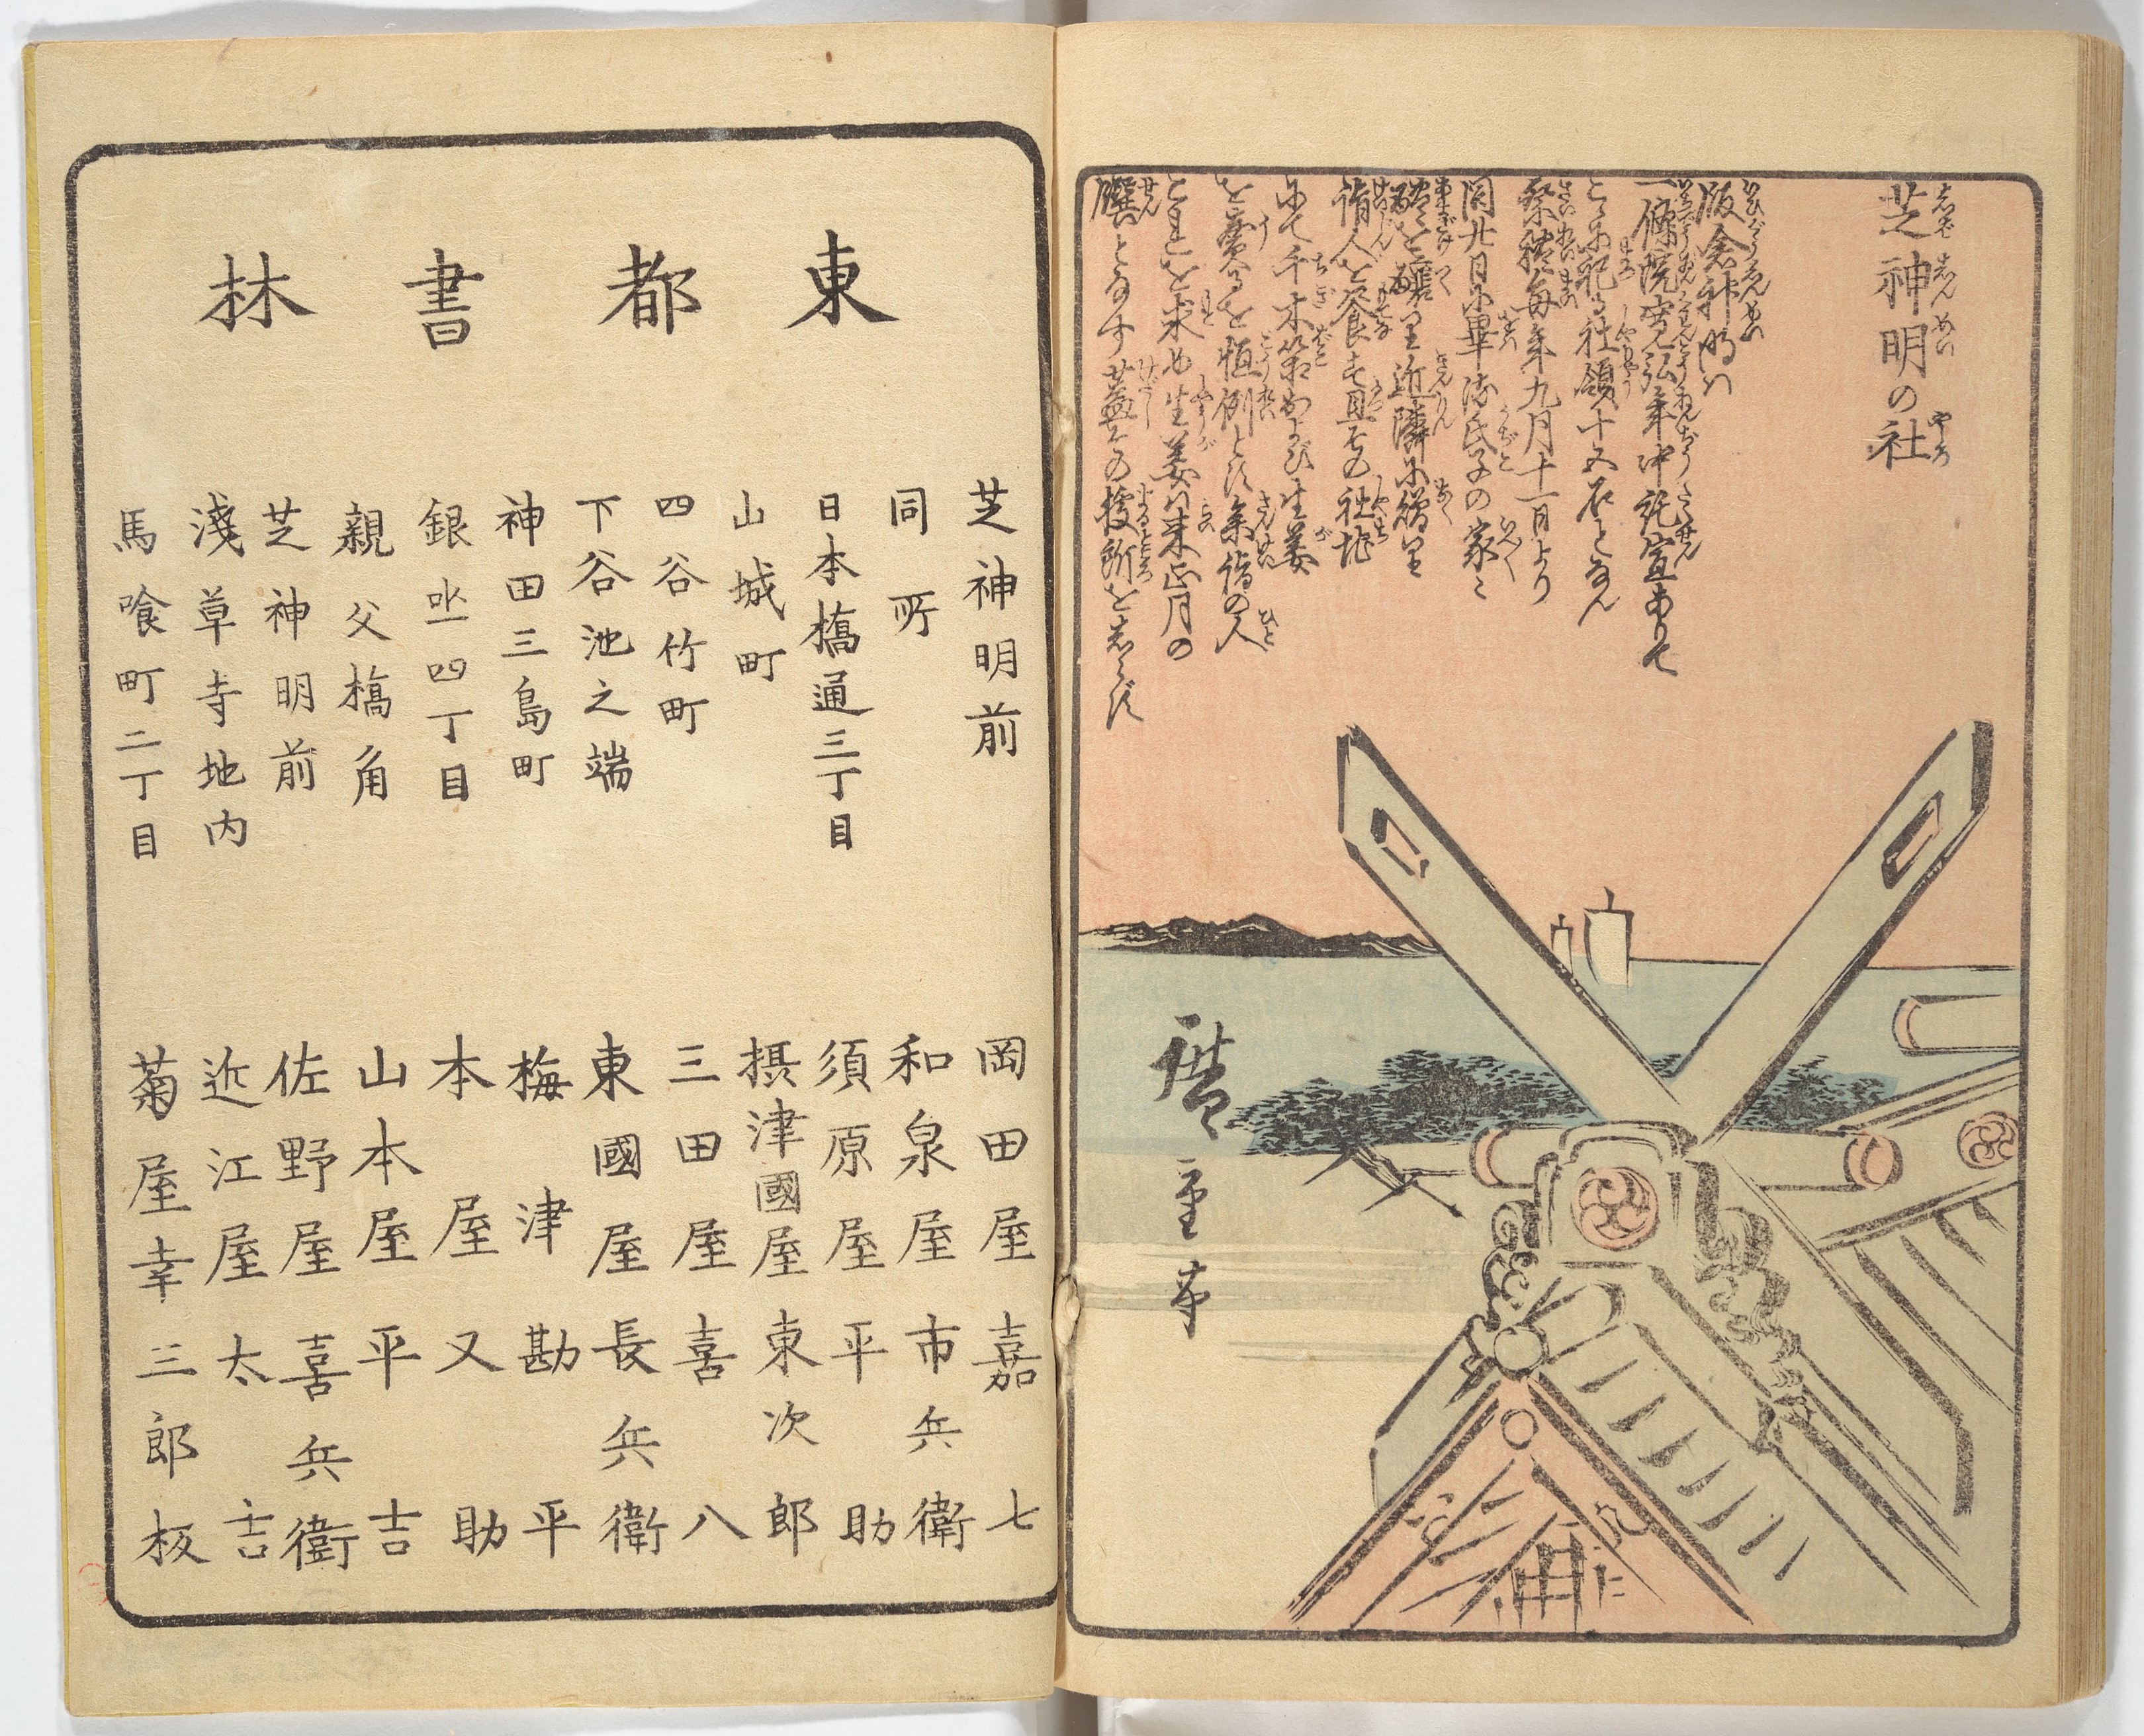 芝神明の社
飯倉神明ハ
一條院寛弘年中託宣ありて
こゝに祀る社領十五石となん
祭禮毎年九月十一日より
同廿日に畢於氏子の家々
醴を醸し近隣に贈り
詣人を食せしむ且この社地
にて千木筥および生姜
を賣るを恒例とす参詣の人
これを求め生姜ハ来正月の
饌となす蓋その據所をしらず
廣重筆
東都書林
芝神明前 岡田屋嘉七
同所 和泉屋市兵衛
日本橋通三丁目 須原屋平助
山城町 摂津國屋東次郎
四谷竹町 三田屋喜八
下谷池之端 東國屋長兵衛
神田三島町 梅津勘平
銀坐四丁目 本屋又助
親父橋角 山本屋平吉
芝神明前 佐野屋喜兵衛
淺草寺地内 近江屋太吉
馬喰町二丁目 菊屋幸三郎板